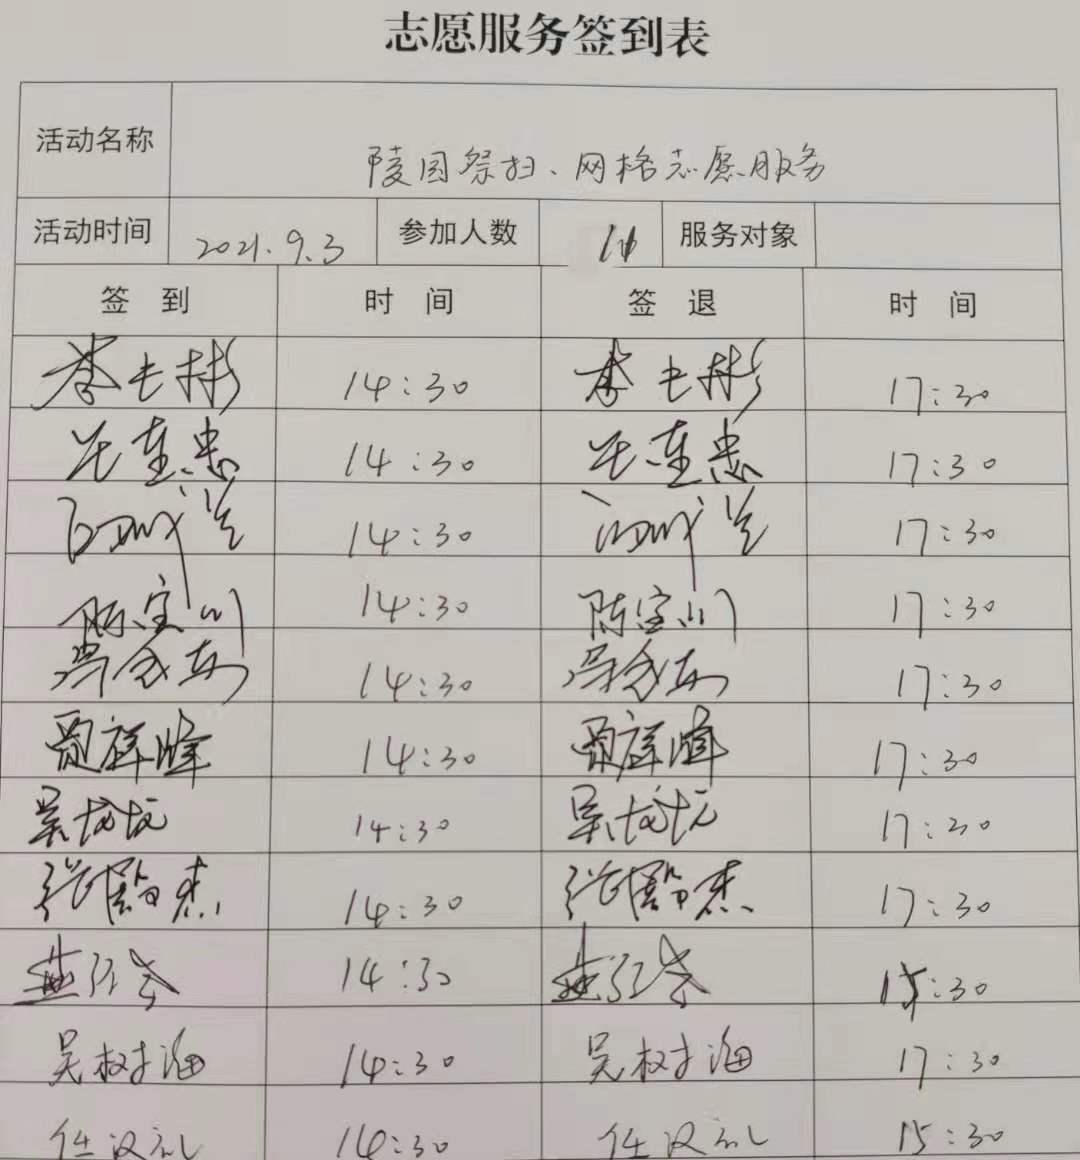 志愿服务签到表
活动名称 陵园祭扫、网格志愿服务
活动时间 2021.9.3 参加人数 服务对象
签到 时间 签退 时间
李士彬 14:30 李士彬 17:30
14:30 17:30
14:30 17:30
陈宝川 14:30 陈宝川 17:30
14:30 17:30
贾祥峰 14:30 贾祥峰 17:30
14:30 17:30
14:30 17:30
14:30 15:30
吴树海 14:30 吴树海 17:30
任汉礼 14:30 任汉礼 15:30